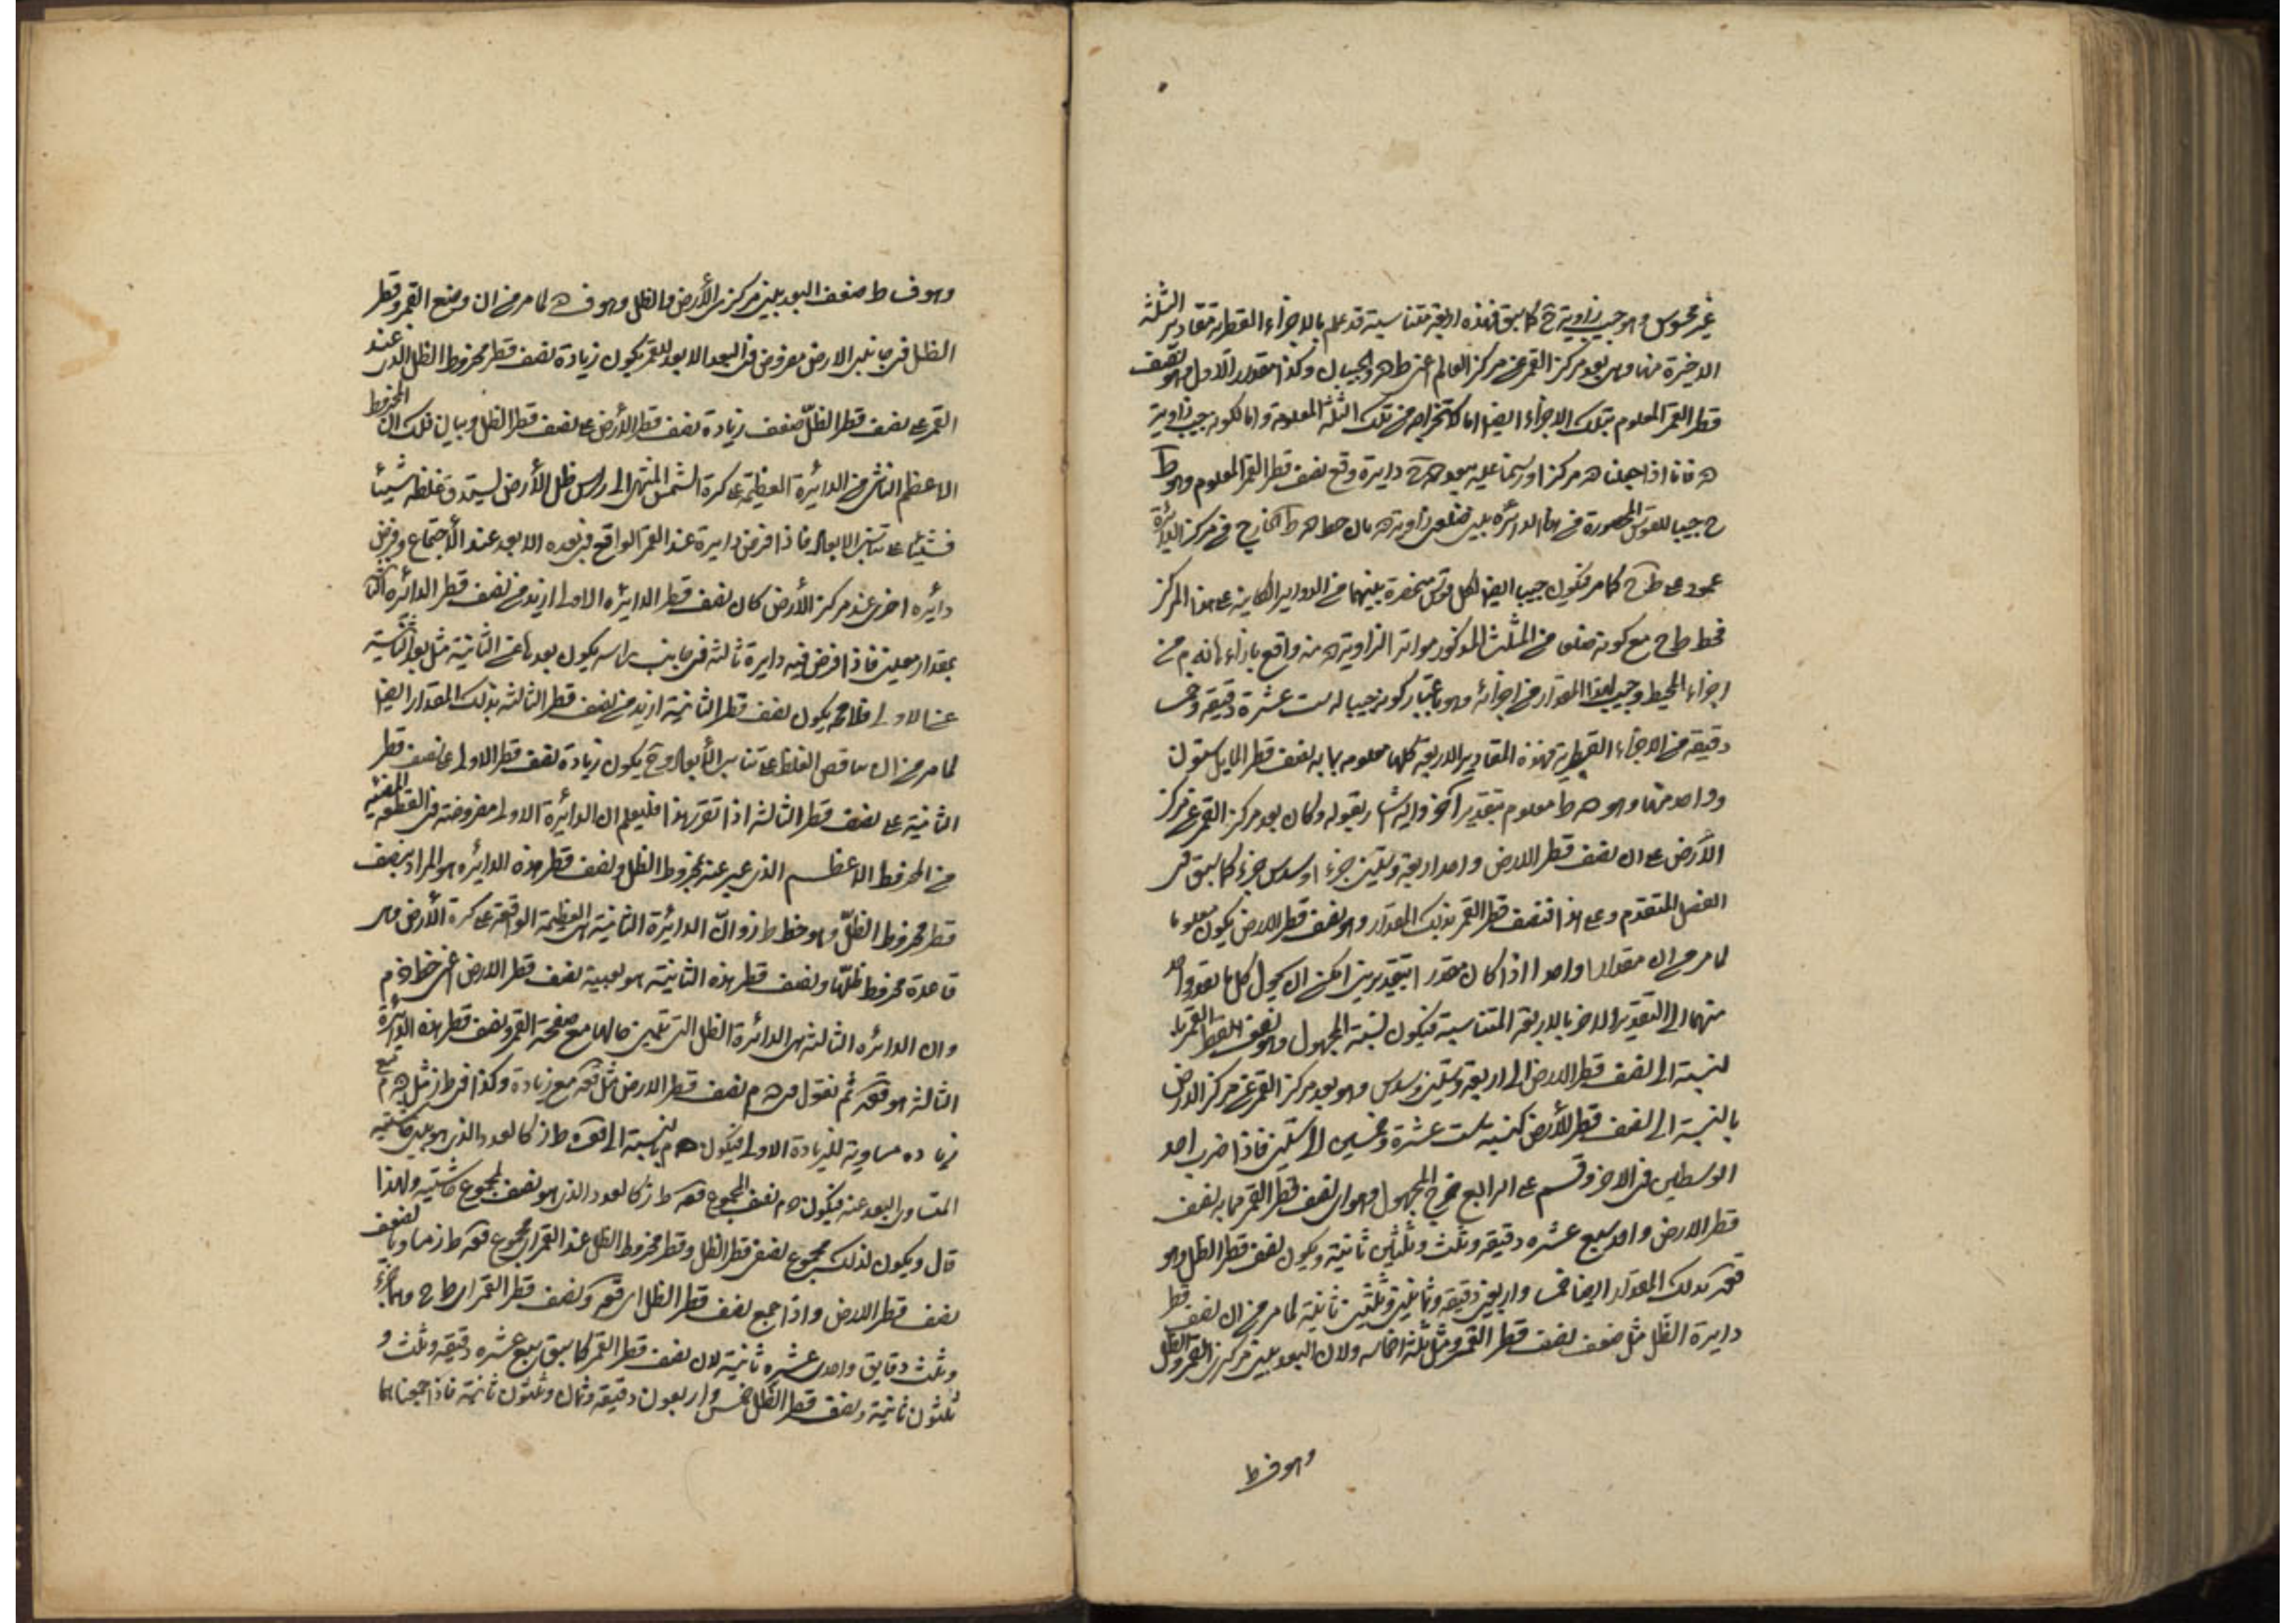 غير محسوس وهو جيب زاوية ح كما سبق فهذه اربعة متناسبة قد علم بالاجزاء القطرية مقادير الثلثة
الاخيرة منها وهى بعد مركز القمر عن مركز العالم اعنى ط ه والجيبان وكذا مقدار الاول وهو نصف
قطر القمر المعلوم بتلك الاجزاء ايضا اما لاستخراجه من تلك الثلثة المعلومة واما لكونه جيب زاوية
ه فانا اذا جعلنا ه مركزا ورسمنا عليه ببعد ه ح دايرة وقع نصف قطر القمر المعلوم وهو ط
ح جيبا للقوس المحصورة من هذه الدائرة بين ضلعى زاوية ه بان خط ه ط الخارج من مركز الدائرة
عمود على ط ح كما مر فيكون جيبا ايضا لكل قوس منحصرة بينهما من الدواير الكاينة على هذا المركز
فخط ط ح مع كونه ضلعا من المثلث المذكور موترا لزاوية ه منه واقع بازاء
اجزاء المحيط وجيب لهذا المقدار من اجزائه وهو باعتبار كونه جيبا له ست عشرة دقيقة وخمس
دقيقة من الاجزاء القطرية فهذه المقادير الاربعة كلها معلومة بما به نصف قطر المايل ستون
وواحد منها وهو ه ط معلوم بتقدير آخر واليه اشار بقوله وكان بعد مركز القمر عن مركز
الارض على ان نصف قطر الارض واحد اربعة وستين جزءا وسدس جزء كما سبق فى
الفصل المتقدم وعلى هذا فنصف قطر القمر بذلك المقدار وهو نصف قطر الارض يكون معلوما
لما مر من ان مقدارا واحدا اذا كان مقدرا بتقديرين امكن ان يحول كل ما يقدر واحد
منهما الى التقدير الاخر بالاربعة المتناسبة فيكون نسبة المجهول وهو نصف القطر القمر بما
لنسبته الى نصف قطر الارض الى اربعة وستين وسدس وهو بعد مركز القمر عن مركز الارض
بالنسبة الى نصف قطر الارض كنسبة ست عشرة وخمسين الى ستين فاذا ضرب احد
الوسطين فى الاخر وقسم على الرابع خرج المجهول وهو ان نصف قطر القمر مما به نصف
قطر الارض واحد سبع عشره دقيقة وثلث وثلثين ثانية ويكون نصف قطر الظل وهو
بذلك المقدار ايضا خمسا واربعين دقيقة وثمانية وثلثين ثانية لما مر من ان نصف قطر
دايرة الظل مثلا ضعف نصف قطر القمر ومثل ثلثة اخماسه ولان البعد بين مركزى القمر والظل
وهو ف ط
وهو ف ط ضعف البعد بين مركزى الأرض والظل وهو ف ه لما مر من ان وضع القمر وقطر
الظل فى جانبى الارض مفروض فى البعد الابعد للقمر يكون زيادة نصف قطر مخروط الظل الذى عند
القمر على نصف قطر الظلّ ضعف زيادة نصف قطر الأرض على نصف قطر الظل وبيان ذلك ان المخروط
الاعظم الناشى من الدائرة العظيمة على كرة الشمس المنتهى الى رأس ظل الأرض يستدق غلظه شيئا
فشيئا على تناسب الابعاد فاذا فرض دايرة عند القمر الواقع فى بعده الابعد عند الأجتماع وفرض
دائره اخرى عند مركز الأرض كان نصف قطر الدائرة الاولى ازيد من نصف قطر الدائره الثانية
بمقدار معين فاذا فرض فيه دايرة ثالثة فى جانب رأسه يكون بعدها عن الثانية مثل بعد الثانية
عن الاولى فلا محة يكون نصف قطر الثانية ازيد من نصف قطر الثالثة بذلك المقدار ايضا
لما مر من ان تناقص الغلظ على تناسب الأبعاد وح يكون زيادة نصف قطر الاولى على نصف قطر
الثانية على نصف قطر الثالثة اذا تقرر هذا فليعلم ان الدائرة الاولى مفروضة فى القطعة المضيئة
من المخروط الاعظم الذى عبر عنه بمخروط الظل ونصف قطر هذه الدائره هو المراد بنصف
قطر مخروط الظلّ وهو خط ط ز وانّ الدائرة الثانية هى العظيمة الواقعة على كرة الأرض وهى
قاعدة مخروط ظلّها ونصف قطر هذه الثانية هو بعينه نصف قطر الارض اعنى خط ه م
وان الدائره الثالثة هى الدائرة الظل التى تبين حالها مع صفحة القمر ونصف قطر هذه الدائرة
الثالثة هو ثم نقول فى ه م نصف قطر الارض مثل مع زيادة وكذا فى ط ز مثل ه م مع
زيادة مساوية للزيادة الاولى فيكون ه م بالنسبة الى ط ز كالعدد الذى هو بين حاشيتيه
المتساوى البعد عنه فيكون ه م نصف المجموع ط ز كالعدد الذى هو نصف مجموع حاشيتيه ولهذا
قال ويكون لذلك مجموع نصف قطر الظل وقطر مخروط الظل عند القمر اى مجموع ط ز مساويا لضعف
نصف قطر الارض واذا جمع نصف قطر الظل اى ونصف قطر القمر اى ط ح وهما جزء
وثلث دقايق واحدى عشره ثانية لان نصف قطر القمر كما سبق سبع عشره دقيقة وثلث و
ثلثون ثانية ونصف قطر الظل خمس واربعون دقيقة وثمان وثلثون ثانية فاذا جمعناهما